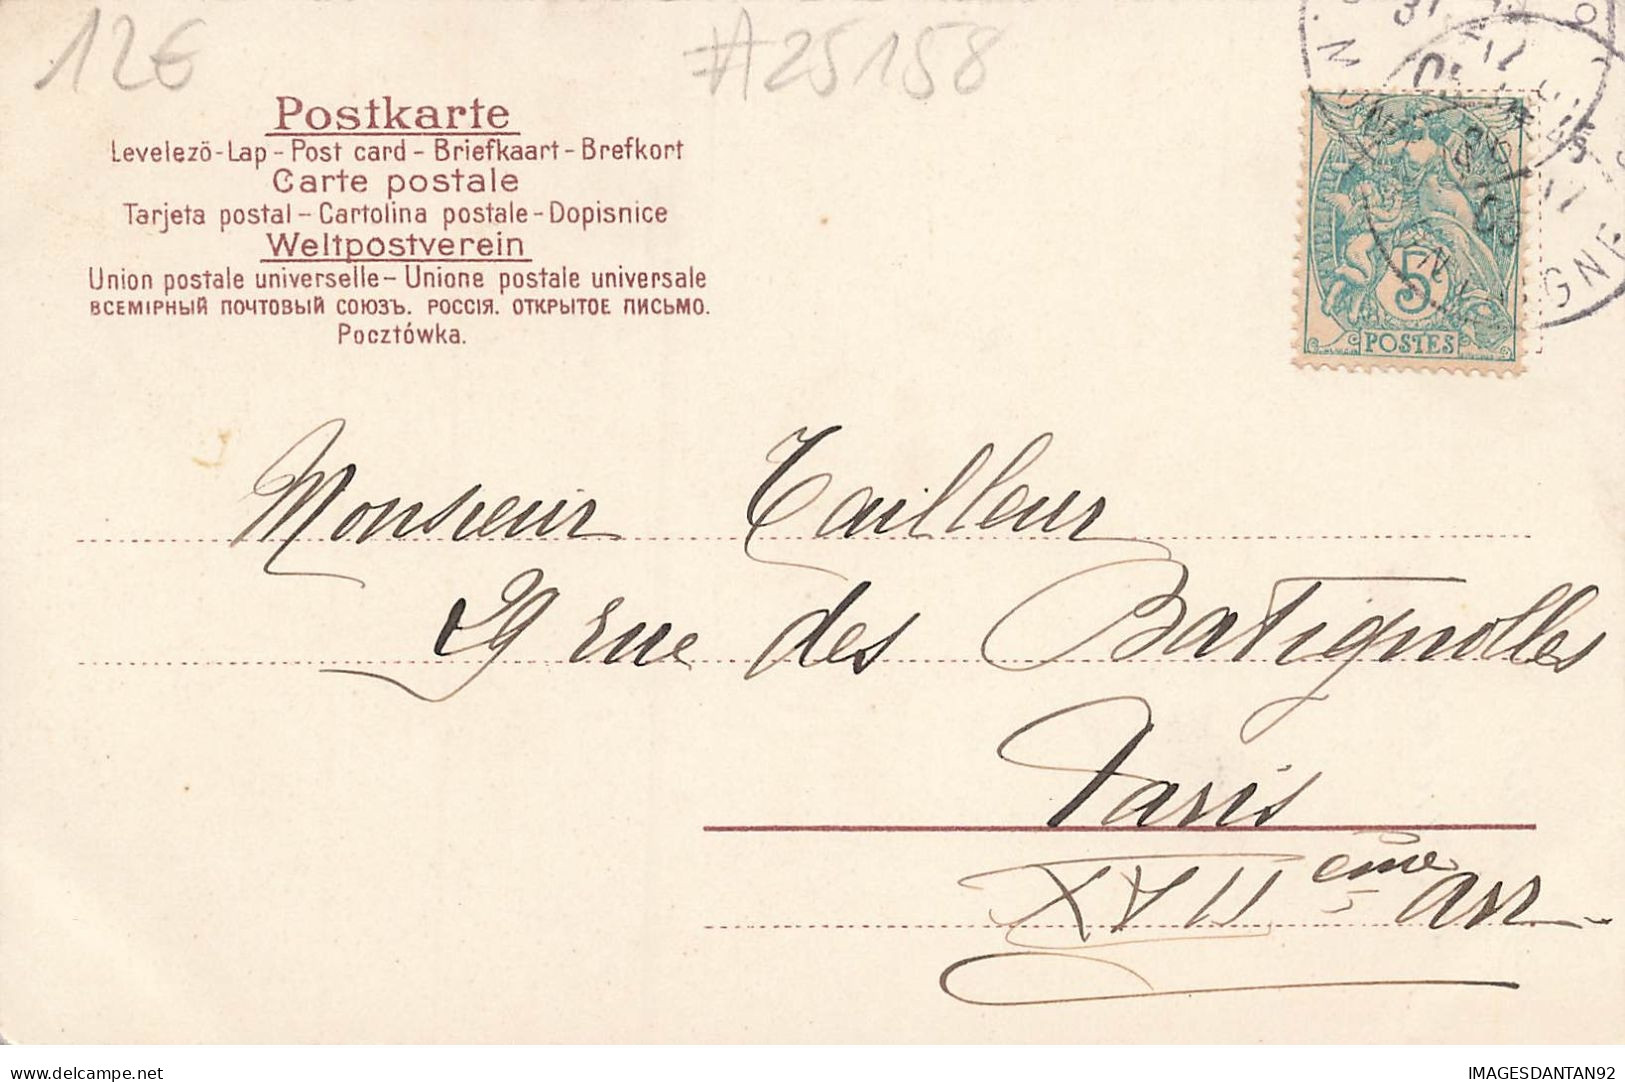 12€ #25158
Postkarte
Levelező-Lap - Post card - Briefkaart - Brefkort
Carte postale
Tarjeta postal - Cartolina postale - Dopisnice
Weltpostverein
Union postale universelle - Unione postale universale
ВСЕМІРНЫЙ ПОЧТОВЫЙ СОЮЗЪ. РОССІЯ. ОТКРЫТОЕ ПИСЬМО.
Pocztówka.
5
POSTES
Monsieur Tailleur
29 rue des Batignolles
Paris
XVII eme arr
IMAGESDANTAN92
delcampe.net